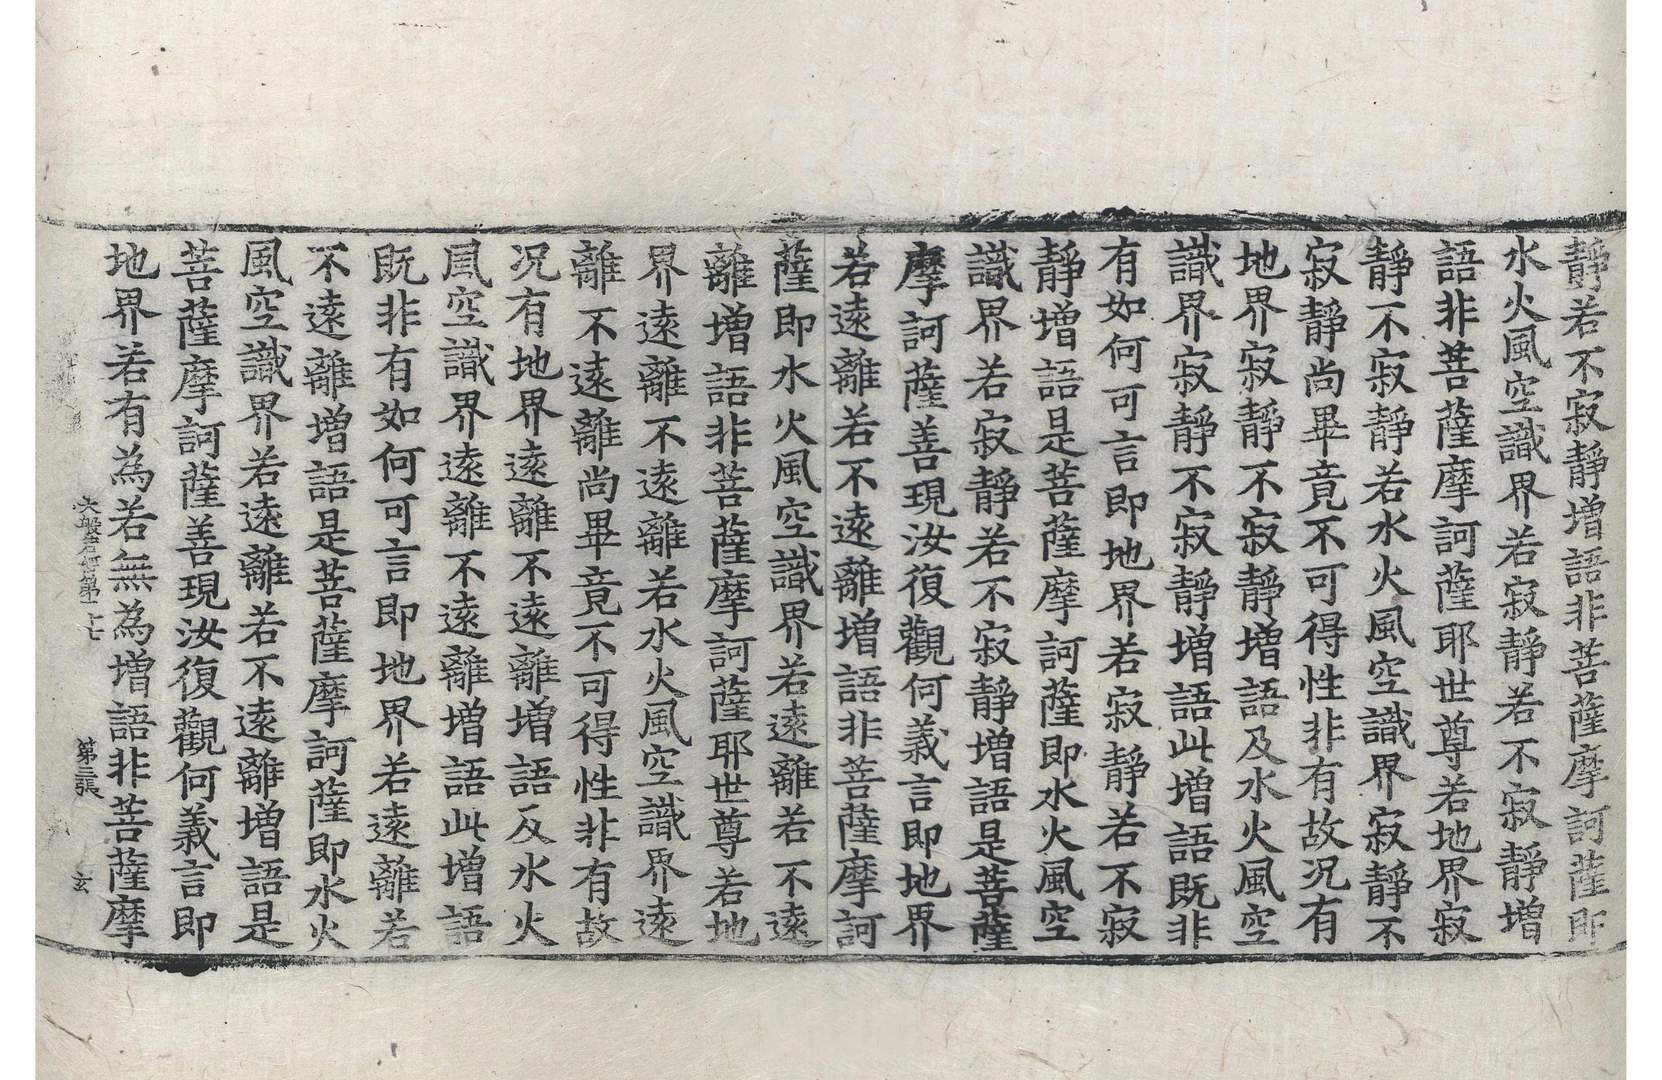 靜若不寂靜增語非菩薩摩訶薩即
水火風空識界若寂靜若不寂靜增
語非菩薩摩訶薩耶世尊若地界寂
靜不寂靜若水火風空識界寂靜不
寂靜尚畢竟不可得性非有故况有
地界寂靜不寂靜增語及水火風空
識界寂靜不寂靜增語此增語既非
有如何可言即地界若寂靜若不寂
靜增語是菩薩摩訶薩即水火風空
識界若寂靜若不寂靜增語是菩薩
摩訶薩善現汝復觀何義言即地界
若遠離若不遠離增語非菩薩摩訶
薩即水火風空識界若遠離若不遠
離增語非菩薩摩訶薩耶世尊若地
界遠離不遠離若水火風空識界遠
離不遠離尚畢竟不可得性非有故
况有地界遠離不遠離增語及水火
風空識界遠離不遠離增語此增語
既非有如何可言即地界若遠離若
不遠離增語是菩薩摩訶薩即水火
風空識界若遠離若不遠離增語是
菩薩摩訶薩善現汝復觀何義言即
地界若有為若無為增語非菩薩摩
第三張 玄